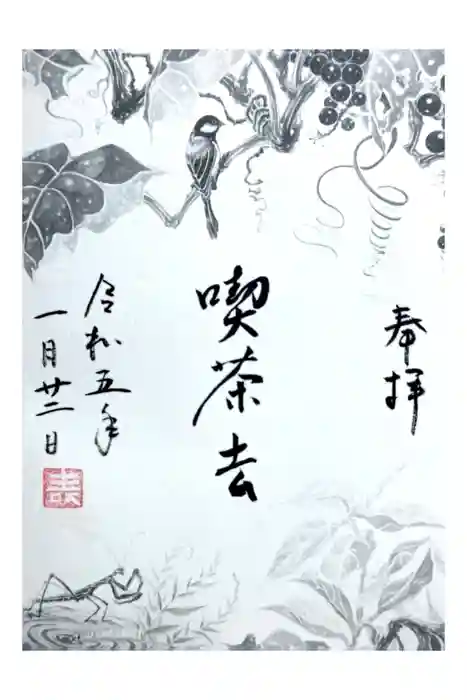 奉拝
喫茶去
令和五年
一月廿二日